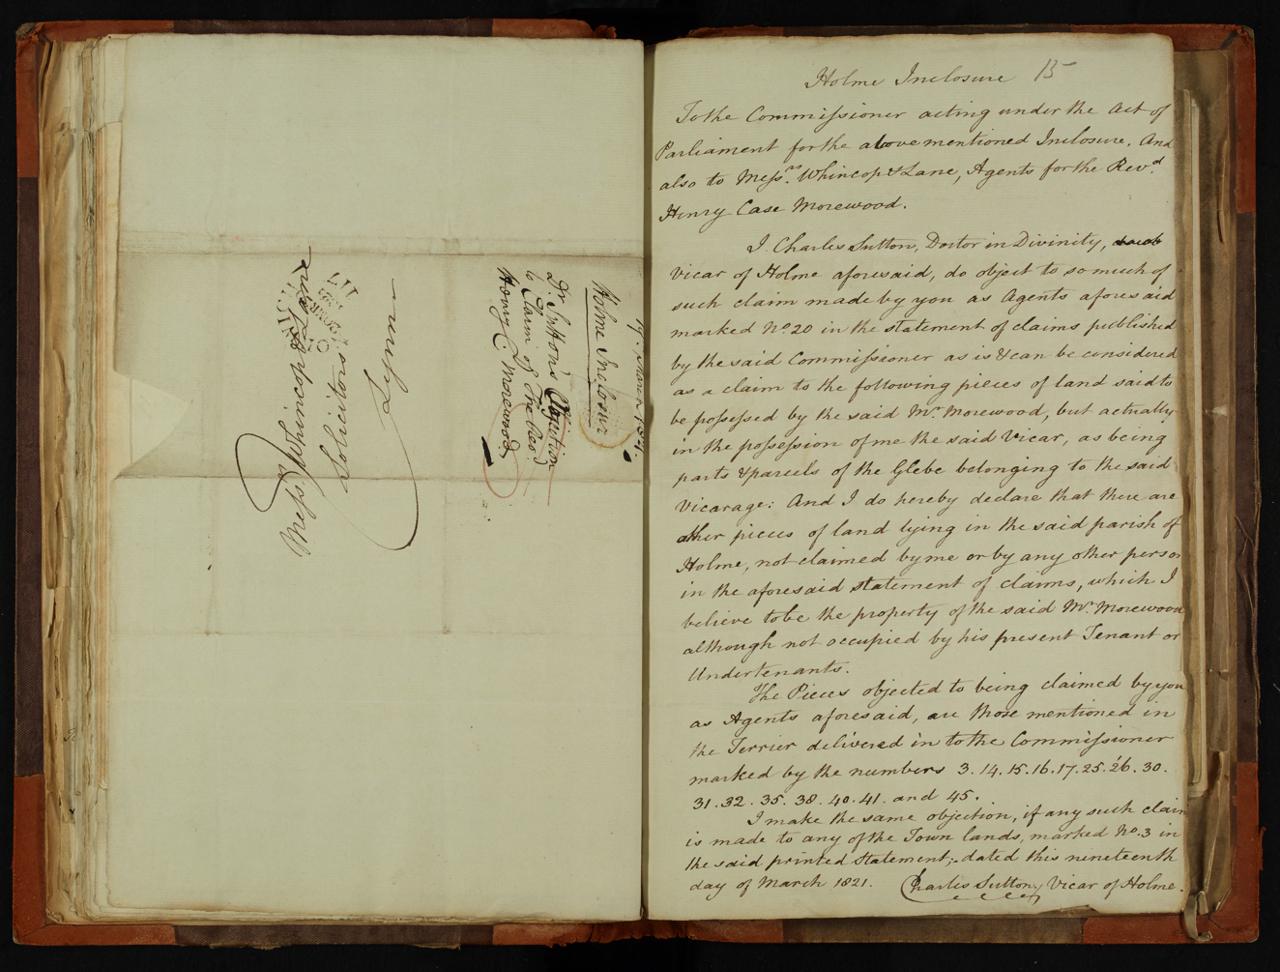 Messrs Whincop & Lane
Solicitors
Lynn
19. March 1821.
Holme Inclosure
Dr. Sutton's Objection
to Claim of The Revd
Henry C. Morewood
Holme Inclosure 15
To the Commissioner acting under the Act of
Parliament for the above mentioned Inclosure. And
also to Messrs. Whincop & Lane, Agents for the Revd.
Henry Case Morewood.
I. Charles Sutton, Doctor in Divinity,
Vicar of Holme aforesaid, do object to so much of
such claim made by you as Agents aforesaid
marked No. 20 in the statement of claims published
by the said Commissioner as is & can be considered
as a claim to the following pieces of land said to
be possessed by the said Mr. Morewood, but actually
in the possession of me the said Vicar, as being
parts & parcels of the Glebe belonging to the said
Vicarage: And I do hereby declare that there are
other pieces of land lying in the said parish of
Holme, not claimed by me or by any other person
in the aforesaid statement of claims, which I
believe to be the property of the said Mr. Morewood
although not occupied by his present Tenant or
Undertenants.
The Pieces objected to being claimed by you
as Agents aforesaid, are those mentioned in
the Terrier delivered in to the Commissioner
marked by the numbers 3. 14. 15. 16. 17. 25. 26. 30.
31. 32. 35. 38. 40. 41. and 45.
I make the same objection, if any such claim
is made to any of the Town lands, marked No. 3 in
the said printed statement; dated this nineteenth
day of March 1821. Charles Sutton, Vicar of Holme.